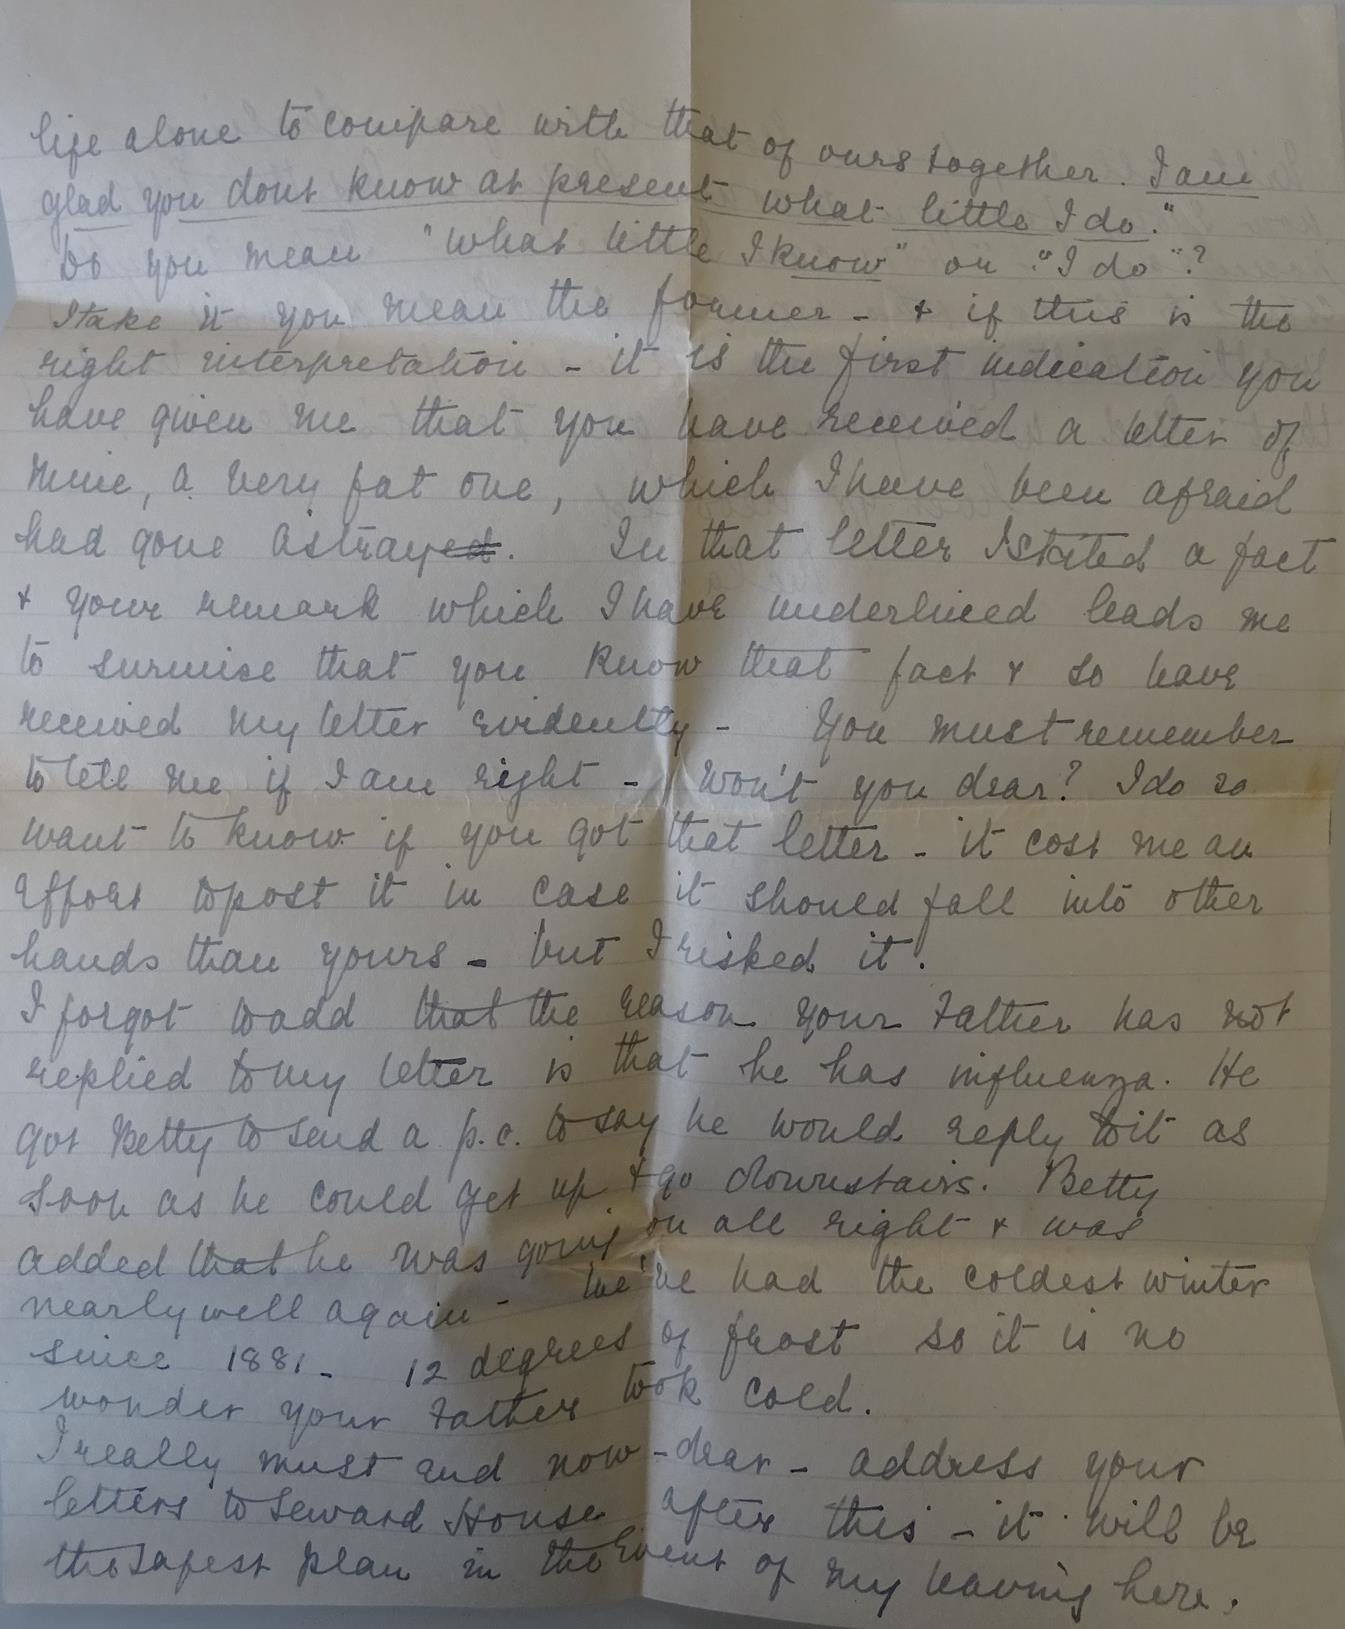 life alone to compare with that of ours together. I am
glad you dont know at present what little I do."
Do you mean "what little I know" or "I do"?
I take it you mean the former - & if this is the
right interpretation - it is the first indication you
have given me that you have received a letter of
mine, a very fat one, which I have been afraid
had gone astrayed. In that letter I stated a fact
& your remark which I have underlined leads me
to surmise that you know that fact & so have
received my letter evidently - You must remember
to tell me if I am right - won't you dear? I do so
want to know if you got that letter - it cost me an
effort to post it in case it should fall into other
hands than yours - but I risked it.
I forgot to add that the reason your Father has not
replied to my letter is that he has influenza. He
got Betty to send a p.c. to say he would reply to it as
soon as he could get up & go downstairs. Betty
added that he was going on all right & was
nearly well again - We've had the coldest winter
since 1881 - 12 degrees of frost so it is no
wonder your Father took cold.
I really must end now - dear - address your
letters to Seward House after this - it will be
the safest plan in the event of my leaving here.